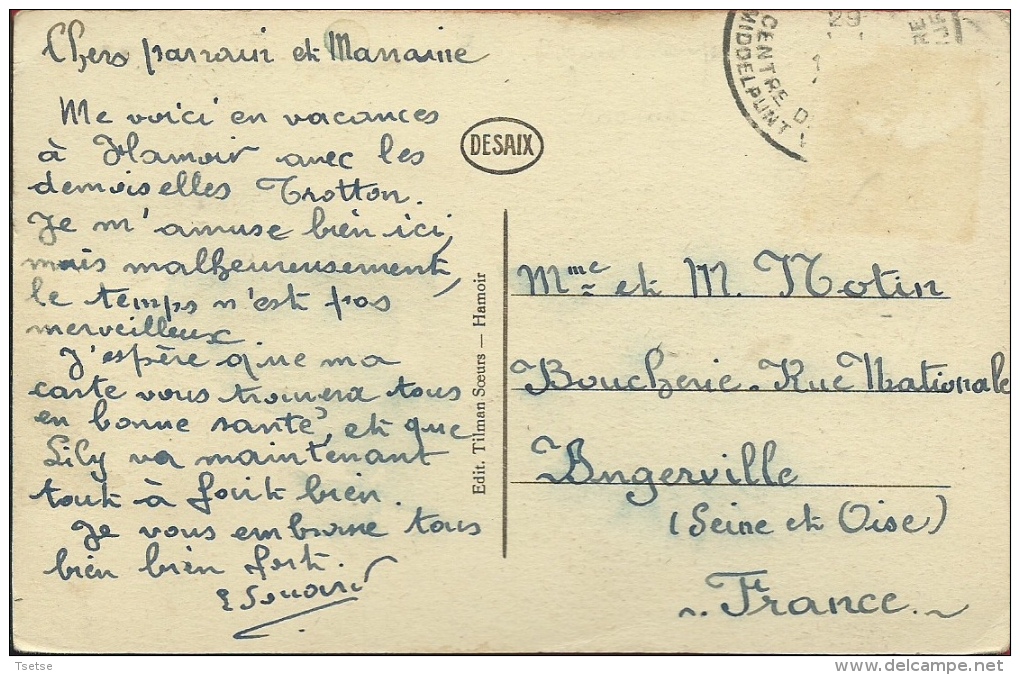 Chers parrain et Marraine
Me voici en vacances
à Hamoir avec les
demoiselles Trotton.
Je m'amuse bien ici,
mais malheureusement,
le temps n'est pas
merveilleux
J'espère que ma
carte vous trouvera tous
en bonne santé, et que
Lily va maintenant
tout à fait bien.
Je vous embrasse tous
bien bien fort.
DESAIX
Edit. Tilman Sœurs — Hamoir
CENTRE D
MIDDELPUNT
29
Mme et M. Notin
Boucherie. Rue Nationale
Angerville
(Seine et Oise)
France.
Tsetse
www.delcampe.net